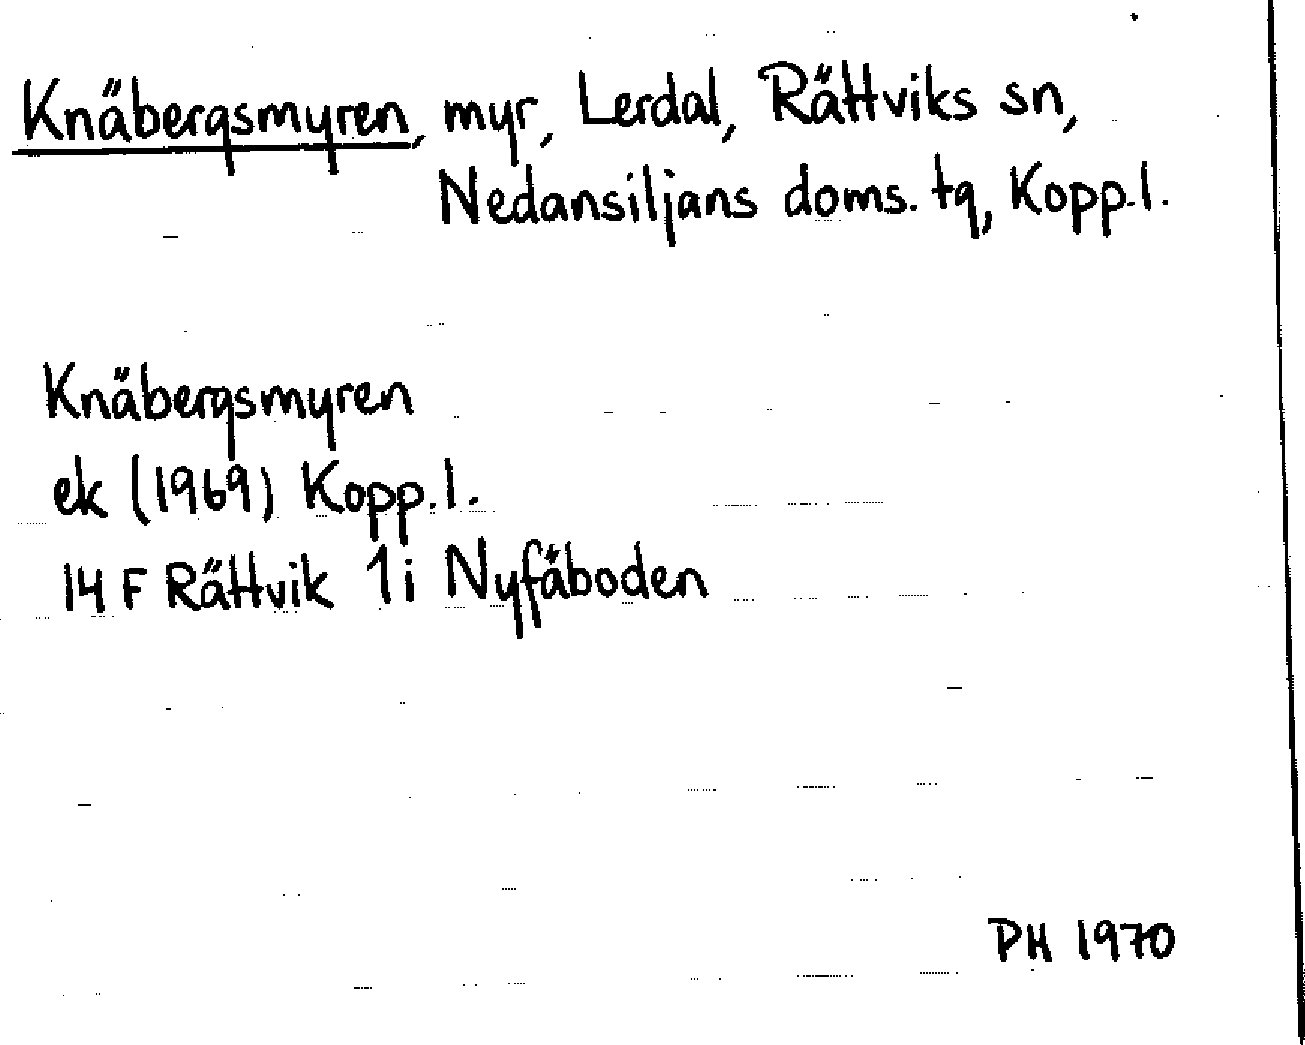 Knäbergsmyren, myr, Lerdal, Rättviks sn,
Nedansiljans doms. tg, Kopp.l.
Knäbergsmyren
ek (1969) Kopp.l.
14 F Rättvik 1i Nyfäboden
PH 1970